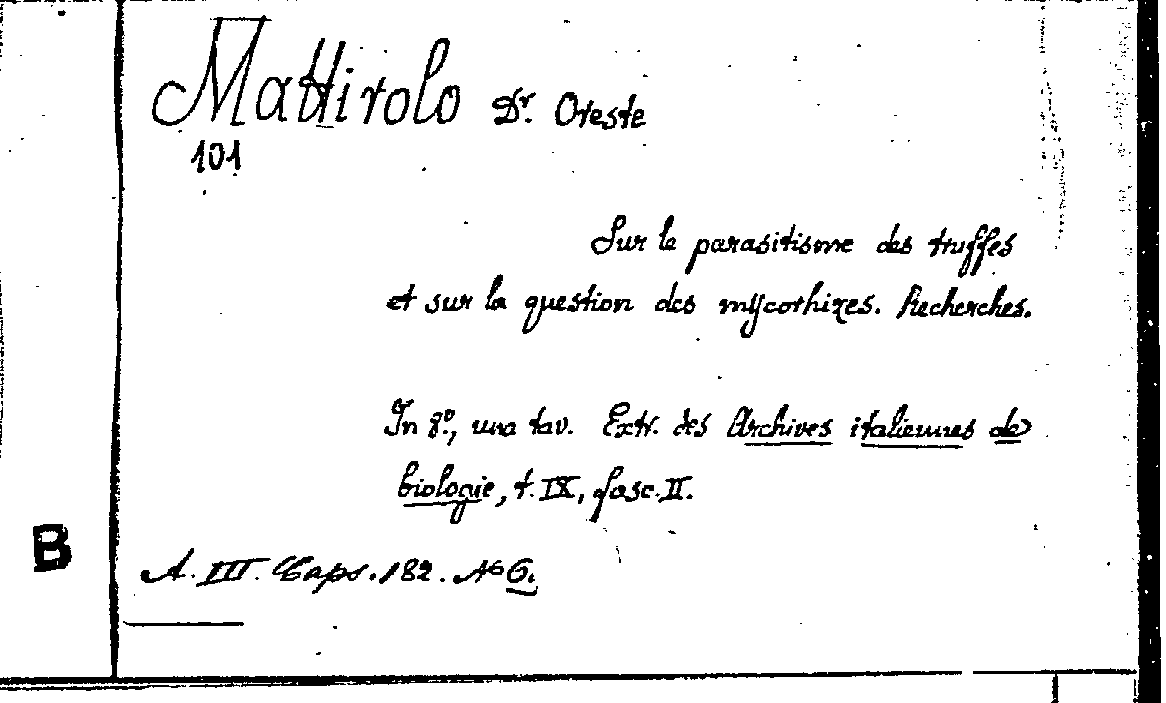 Mattirolo Dr. Oreste
101
Sur le parasitisme des truffes
et sur la question des mycorhizes. Recherches.
In 8º, una tav. Extr. des Archives italiennes de
biologie, t. IX, fasc. II.
B
A. III. Caps. 182. Nº 6.